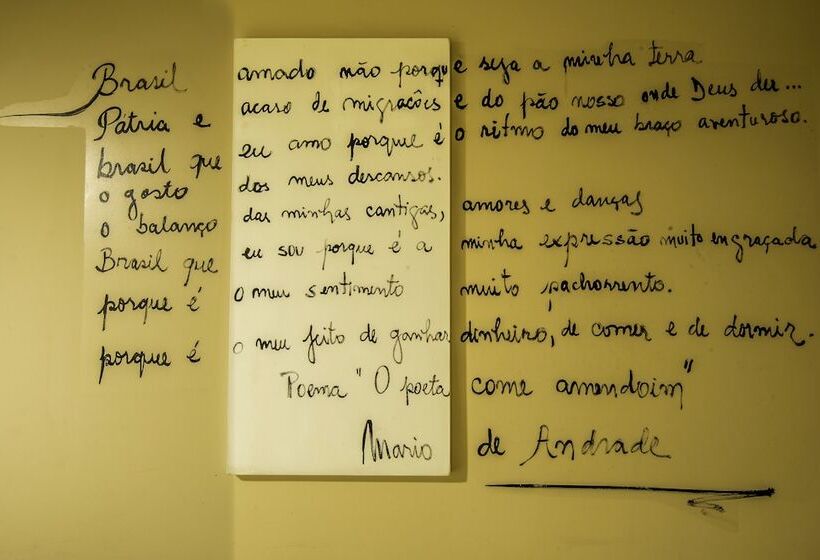 Brasil amado não porque seja a minha terra
Pátria e acaso de migracões e do pão nosso onde Deus der...
brasil que eu amo porque é o ritmo do meu braço aventuroso.
o gosto dos meus descansos.
o balanço das minhas cantigas, amores e danças
Brasil que eu sou porque é a minha expressão muito engraçada
porque é o meu sentimento muito pachorrento.
porque é o meu jeito de ganhar dinheiro, de comer e de dormir.
Poema "O poeta come amendoim"
Mario de Andrade